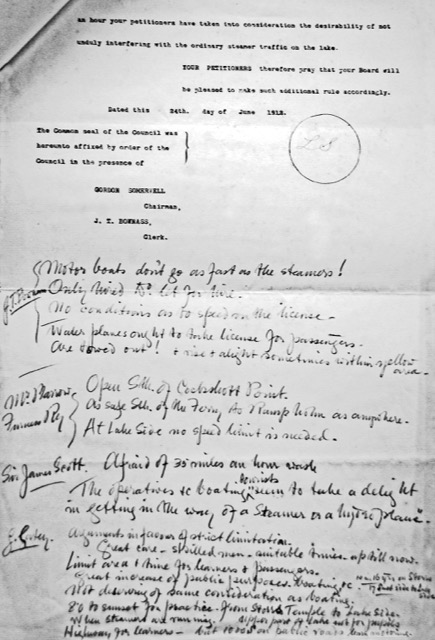 an hour your petitioners have taken into consideration the desirability of not
unduly interfering with the ordinary steamer traffic on the lake.
YOUR PETITIONERS therefore pray that your Board will
be pleased to make such additional rule accordingly.
Dated this 24th. day of June 1912.
The Common seal of the Council was
hereunto affixed by order of the
Council in the presence of
L S
GORDON SOMERVELL
Chairman,
J. T. BOWNASS,
Clerk.
Motor boats don't go as fast as the steamers!
Only hired to let for hire.
No conditions as to speed on the license -
Water planes ought to take license for passengers -
Are towed out! + rise & alight sometimes within yellow
area -
Open Sth. of Cockshott Point.
As safe Sth. of the Ferry to Ramp Holm as anywhere -
At Lake Side no speed limit is needed -
Sir James Scott. Afraid of 35 miles an hour wash
The operatives &c boating seem to take a delight
in getting in the way of a Steamer or a hydro plane -
Arguments in favour of strict limitation.
Great care - skilled men - suitable times - up till now.
Limit area & time for learners & passengers.
Great increase of public purposes. Boating &c
Not deserving of same consideration as boating.
8 to sunset for practice - from Storrs Temple to Lake Side.
When steamers are running. Upper part of Lake not for pupils
Highway for learners -